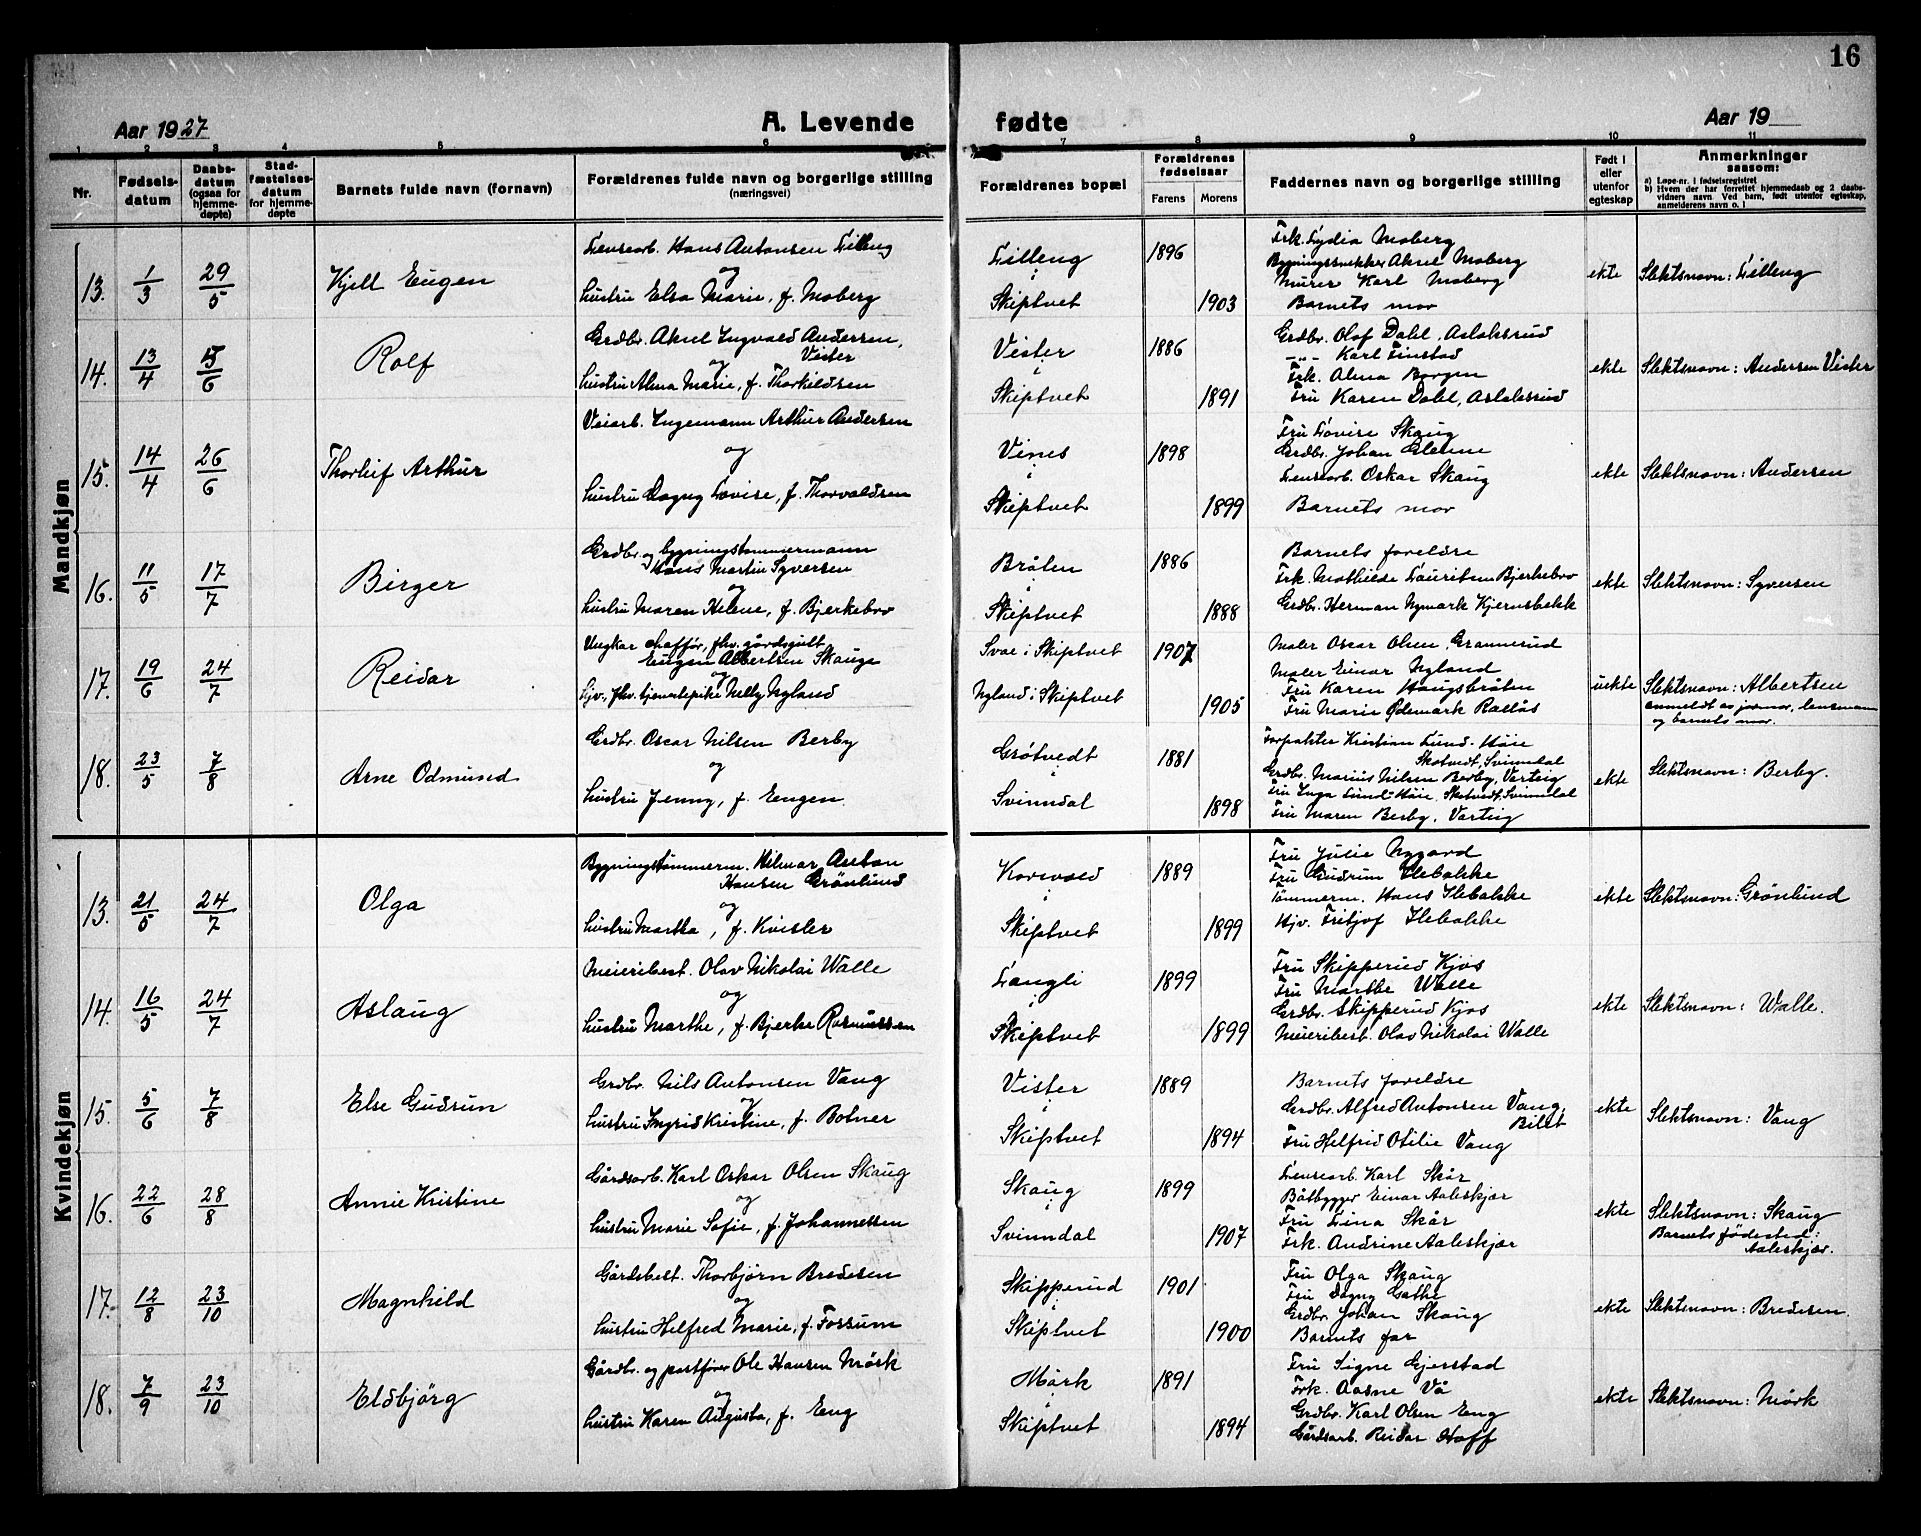 16
Aar 1927
A. Levende
fødte
Aar 19
1 2 3 4 5 6 7 8 9 10 11
Nr.
Fødselsdatum
Daabsdatum (ogsaa for hjemmedøpte)
Stadfæstelsesdatum for hjemmedøpte
Barnets fulde navn (fornavn)
Forældrenes fulde navn og borgerlige stilling
(næringsvei)
Forældrenes bopæl
Forældrenes fødselsaar
Farens
Morens
Faddernes navn og borgerlige stilling
Født i eller utenfor egteskap
Anmerkninger
saasom:
a) Løpe-nr. i fødselsregistret
b) Hvem der har forrettet hjemmedaab og 2 daabsvidners navn. Ved barn, født utenfor egteskap, anmelderens navn o. l
Mandkjøn
13. 1/3 29/5 Kjell Eugen
Lensearb. Hans Antonsen Lilleng
og
hustru Elsa Marie, f. Moberg
Lilleng
i
Skiptvet
1896
1903
Frk. Lydia Moberg
Bygningssnekker Aksel Moberg
Murer Karl Moberg
Barnets mor
ekte
Slektsnavn: Lilleng
14. 13/4 5/6 Rolf
Grdbr. Aksel Ingvald Andersen,
Vister
og
hustru Alma Marie, f. Thorkildsen
Vister
i
Skiptvet
1886
1891
Grdbr. Olof Dahl, Aslaksrud
-"- Karl Finstad
Frk. Alma Borgen
Fru Karen Dahl, Aslaksrud
ekte
Slektsnavn: Andersen Vister
15. 14/4 26/6 Thorleif Arthur
Veiarb. Ingemann Arthur Andersen
og
hustru Dagny Lovise, f. Thorvaldsen
Vines
i
Skiptvet
1898
1899
Fru Lovise Skaug
Grdbr. Johan
Lensearb. Oskar Skaug
Barnets mor
ekte
Slektsnavn: Andersen
16. 11/5 17/7 Birger
Grdbr. og bygningstømmermann
Hans Martin Syversen
og
hustru Maren Helene, f. Bjerkebro
Bråten
i
Skiptvet
1886
1888
Barnets foreldre
Frk. Mathilde Lauritsen Bjerkebro
Grdbr. Herman Nymark Kjernsbekk
ekte
Slektsnavn: Syversen
17. 19/6 24/7 Reidar
Ungkar chaffør, fhv. gårdsgutt
Eugen Albertsen Skauge
og
hjv., fhv. tjenestepike Nelly Nyland
Svae i Skiptvet
Nyland i Skiptvet
1907
1905
Maler Oscar Olsen, Grannerud
Maler Einar Nyland
Fru Karen Haugsbråten
Fru Marie Ødemark Rællås
uekte
Slektsnavn: Albertsen
anmeldt av jormor, lensmann
og barnets mor.
18. 23/5 7/8 Arne Odmund
Grdbr. Oscar Nilsen Berby
og
hustru Jenny, f. Engen
Grøtvedt
i
Svinndal
1881
1898
Forpakter Kristian Lund-Høie
Skotvedt, Svinndal
Grdbr. Marius Nilsen Berby, Varteig
Fru Inga Lund-Høie, Skotvedt, Svinndal
Fru Maren Berby, Varteig
ekte
Slektsnavn: Berby.
Kvindekjøn
13. 21/5 24/7 Olga
Bygningstømmerm. Hilmar Anton
Hansen Grønlund
og
hustru Martha, f. Kvisler
Karivold
i
Skiptvet
1889
1899
Fru Julie Nygård
Fru Gudrun Ilebakke
Tømmerm. Hans Ilebakke
Hjv. Fritjof Ilebakke
ekte
Slektsnavn: Grønlund
14. 16/5 24/7 Aslaug
Meieribest. Olav Nikolai Walle
og
hustru Marthe, f. Bjerke Rasmussen
Langli
i
Skiptvet
1899
1899
Fru Skipperud Kjos
Fru Marthe Walle
Grdbr. Skipperud Kjos
Meieribest. Olav Nikolai Walle
ekte
Slektsnavn: Walle.
15. 5/6 7/8 Else Gudrun
Grdbr. Nils Antonsen Vang
og
hustru Ingrid Kristine, f. Botner
Vister
i
Skiptvet
1889
1894
Barnets foreldre
Grdbr. Alfred Antonsen Vang,
Bilet
Fru Helfrid Otilie Vang
ekte
Slektsnavn: Vang
16. 22/6 28/8 Annie Kristine
Gårdsarb. Karl Oskar Olsen Skaug
og
hustru Marie Sofie, f. Johannessen
Skaug
i
Svinndal
1899
1907
Lensearb. Karl Skår
Båtbygger Einar Aaleskjær
Fru Lina Skår
Frk. Andrine Aaleskjær
ekte
Slektsnavn: Skaug
Barnets fødested:
Aaleskjær.
17. 12/8 23/10 Magnhild
Gårdsbest. Thorbjørn Bredesen
og
hustru Helfred Marie, f. Fossum
Skipperud
i
Skiptvet
1901
1900
Fru Olga Skaug
Fru Dagny Gathe
Grdbr. Johan Skaug
Barnets far
ekte
Slektsnavn: Bredesen.
18. 7/9 23/10 Eldbjørg
Gårdbr. og postfører Ole Hansen Mørk
og
hustru Karen Augusta, f. Eng
Mørk
i
Skiptvet
1891
1894
Fru Signe Gjerstad
Frk. Aasne Vå
Grdbr. Karl Olsen Eng
Gårdsarb. Reidar Hoff
ekte
Slektsnavn: Mørk